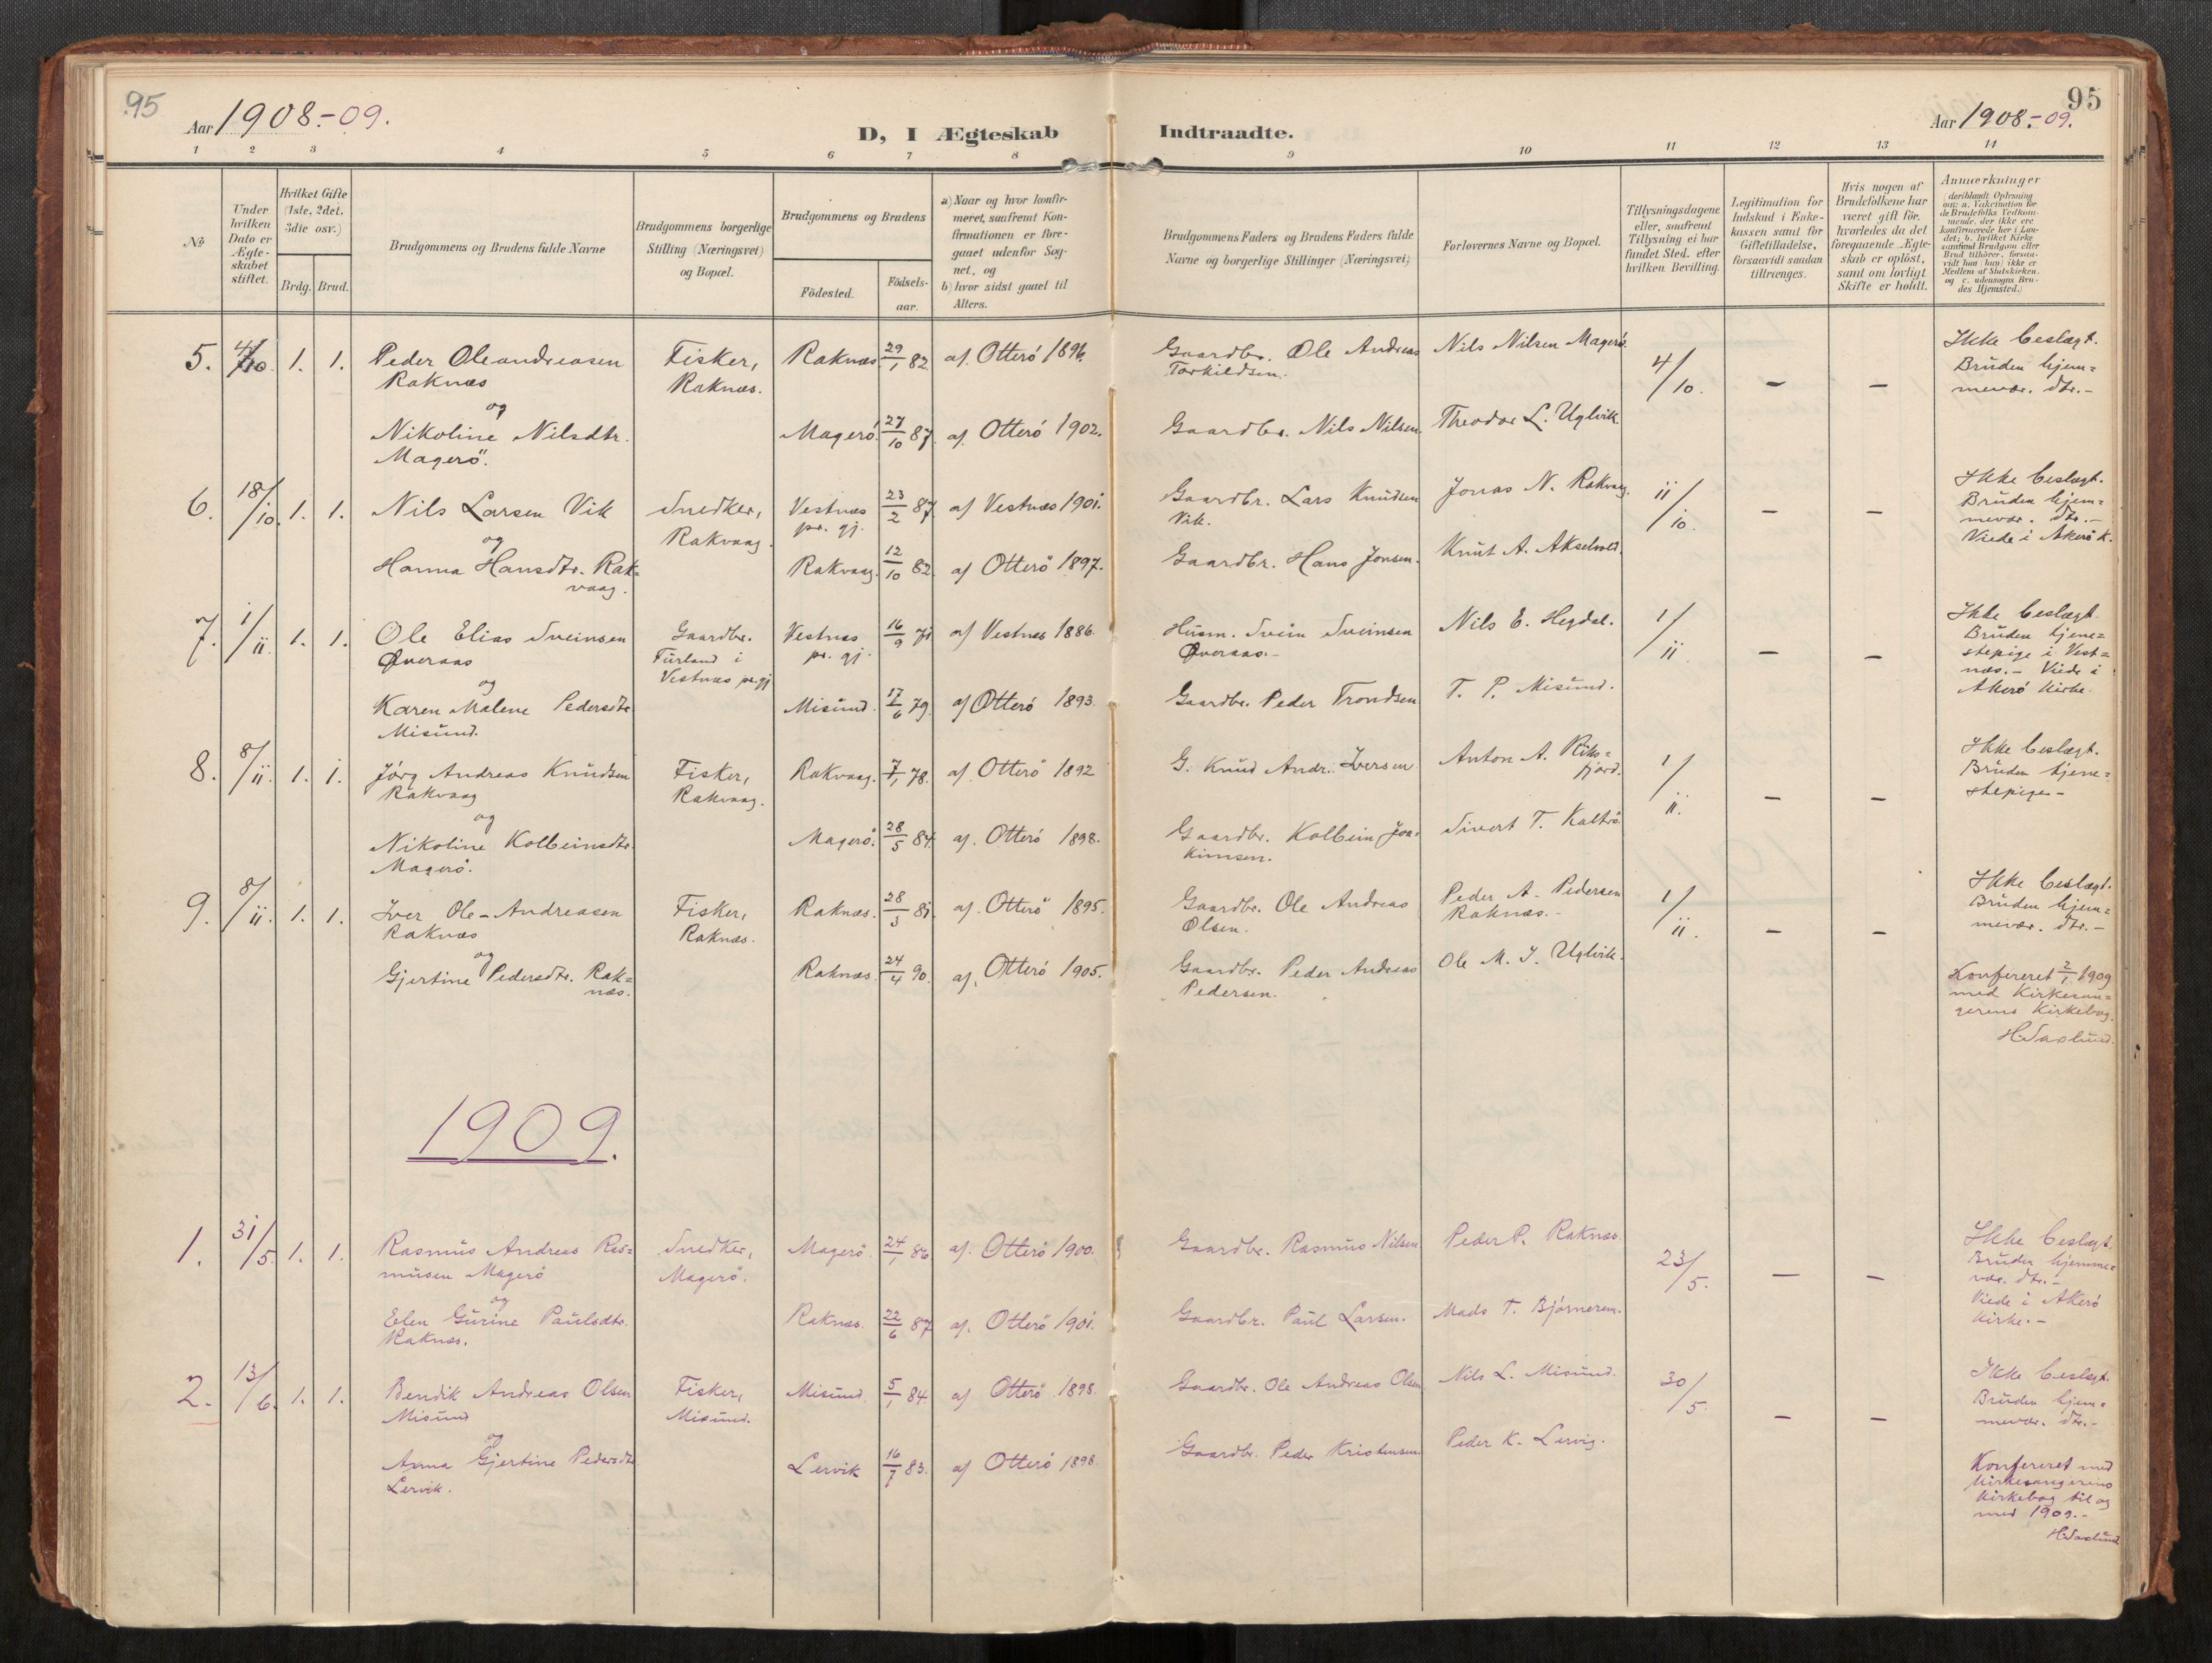 95
Aar 1908.-09.
D, I Ægteskab Indtraadte.
95
Aar 1908.-09.
1 2 3 4 5 6 7 8 9 10 11 12 13 14
No
Under hvilken Dato er Ægteskabet stiftet.
Hvilket Gifte (1ste, 2det, 3die osv.)
Brdg. Brud.
Brudgommens og Brudens fulde Navne
Brudgommens borgerlige Stilling (Næringsvei) og Bopæl.
Brudgommens og Brudens
Födested. Födsels-aar.
a) Naar og hvor konfirmeret, saafremt Konfirmationen er foregaaet udenfor Sognet, og
b) hvor sidst gaaet til Alters.
Brudgommens Faders og Brudens Faders fulde Navne og borgerlige Stillinger (Næringsvei)
Forlovernes Navne og Bopæl.
Tillysningsdagene eller, saafremt Tillysning ei har fundet Sted, efter hvilken Bevilling.
Legitimation for Indskud i Enkekassen samt for Giftetilladelse, forsaavidt saadan tiltrænges.
Hvis nogen af Brudefolkene har været gift för, hvorledes da det foregaaende Ægteskab er oplöst, samt om lovligt Skifte er holdt.
Anmærkninger
(deriblandt Oplysning om: a. Vakcination for de Brudefolks Vedkommende, der ikke ere konfirmerede her i Landet; b. hvilket Kirkesamfund Brudgom eller Brud tilhörer, forsaavidt han (hun) ikke er Medlem af Statskirken, og c. udensogns Brudes Hjemsted.)
5. 4/10. 1. 1. Peder Oleandreasen Fisker, Raknæs 29/1 82. af. Otterö 1896. Gaardbr. Ole Andreas Nils Nilsen Magerö. 4/10. - - Ikke beslægt.
Raknæs Raknæs. Torkildsen. Bruden hjem=
og mevær. dtr.-
Nikoline Nilsdtr. Magerö 27/10 87. af. Otterö 1902. Gaardbr. Nils Nilsen. Theodor L. Uglvik.
Magerö.
6. 18/10. 1. 1. Nils Larsen Vik Snedker, Vestnæs 23/2 87. af Vestnæs 1901. Gaardbr. Lars Knudsen Jonas N. Rakvaag. 11/10. - - Ikke beslægt.
og Rakvaag. pr. gj. Vik. Bruden hjem=
mevær. dtr.-
Hanna Hansdtr. Rak= Rakvaag. 12/10 82. af Otterö 1897. Gaardbr. Hans Jonsen. Knut A. Akselvold. Viede i Akerö k.
vaag.
7. 1/11. 1. 1. Ole Elias Sveinsen Gaardbr. Vestnæs 16/9 71. af Vestnæs 1886. Husm. Svein Sveinsen Nils E. Hegdal. 1/11 - - Ikke beslægt.
Øveraas Furland i pr. gj. Øveraas.- Bruden tjene=
og Vestnæs pr.gj. stepige i Vest=
næs.- Viede i
Karen Malene Pedersdtr. Misund. 17/6 79. af Otterö 1893. Gaardbr. Peder Trondsen T. P. Misund. Akerö Kirke.
Misund.
8. 8/11. 1. 1. Jörg Andreas Knudsen Fisker, Rakvaag. 7/1 78. af. Otterö 1892 G. Knud Andr. Iversen Anton A. 1/11. - - Ikke beslægt.
Rakvaag Rakvaag. Bruden tjene=
og stepige-
Nikoline Kolbeinsdtr. Magerö. 28/5 84. af. Otterö 1898. Gaardbr. Kolbein Joa= Sivert T.
Magerö. kimsen.
9. 8/11. 1. 1. Iver Ole-Andreasen Fisker, Raknæs. 28/3 81. af. Otterö 1895. Gaardbr. Ole Andreas Peder A. Pedersen 1/11. - - Ikke beslægt.
Raknæs Raknæs. Olsen. Raknæs.- Bruden hjem=
og mevær. dtr.-
Gjertine Pedersdtr. Rak= Raknæs. 24/4 90. af. Otterö 1905. Gaardbr. Peder Andreas Ole M. J. Uglvik.
næs. Pedersen.
Konfereret 2/1 1909
med Kirkesan=
gerens Kirkebog.
H.Saxlund.
1909.
1. 31/5. 1. 1. Rasmus Andreas Ras= Snedker, Magerö 24/1 86 af. Otterö 1900. Gaardbr. Rasmus Nilsen Peder P. Raknæs. 23/5. - - Ikke beslægt.
musen Magerö Magerö. Bruden hjemme=
og vær. dtr.-
Elen Gurine Paulsdtr. Raknæs. 22/6 87. af. Otterö 1901. Gaardbr. Paul Larsen. Mads T. Björnerem. Viede i Akerö
Raknæs. Kirke.-
2. 13/6. 1. 1. Bendik Andreas Olsen Fisker, Misund. 5/1 84. af Otterö 1898. Gaardbr. Ole Andreas Olsen Nils L. Misund. 30/5. - - Ikke beslægt.
Misund Misund. Bruden hjem=
og mevær. dtr.-
Anna Gjertine Pedersdtr. Lervik 16/7 83. af Otterö 1898. Gaardbr. Peder Kristensen. Peder K. Lervig.
Lervik.
Konfereret med
Kirkesangerens
Kirkebog til og
med 1909.-
H.Saxlund